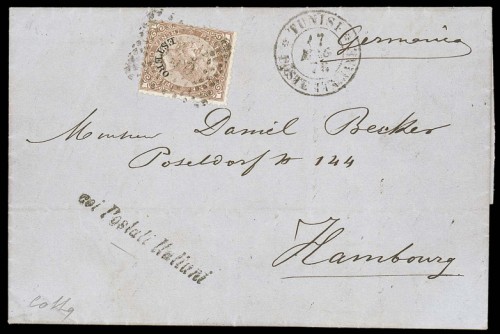 ESTERO
TUNISI
17
75
POSTE ITALIANE
Germania
Monsieur Daniel Becker
Poseldorf № 144
coi Postali Italiani
Hambourg